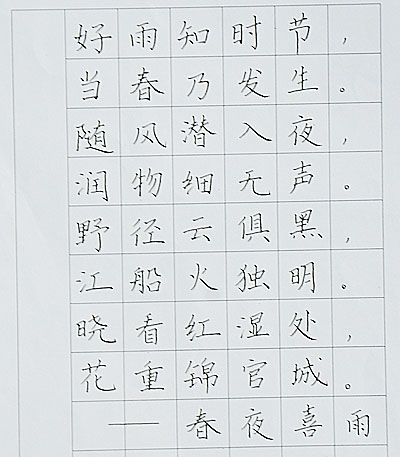 好雨知时节,
当春乃发生。
随风潜入夜,
润物细无声。
野径云俱黑,
江船火独明。
晓看红湿处,
花重锦官城。
——春夜喜雨